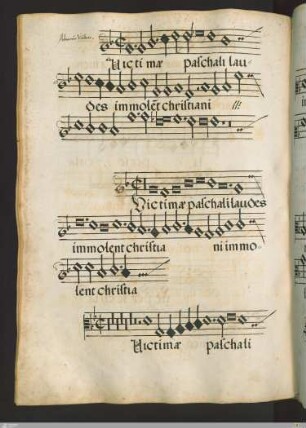 Victimæ paschali lau-
des immolēt christiani
Victimæ paschali laudes
immolent christia ni immo-
lent christia
Victimæ paschali